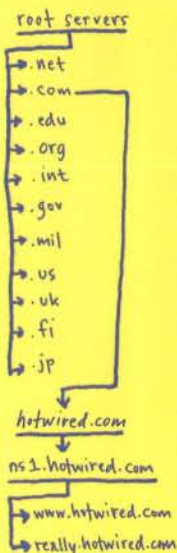 root servers
.net
.com
.edu
.org
.int
.gov
.mil
.us
.uk
.fi
.jp
hotwired.com
ns1.hotwired.com
www.hotwired.com
really.hotwired.com